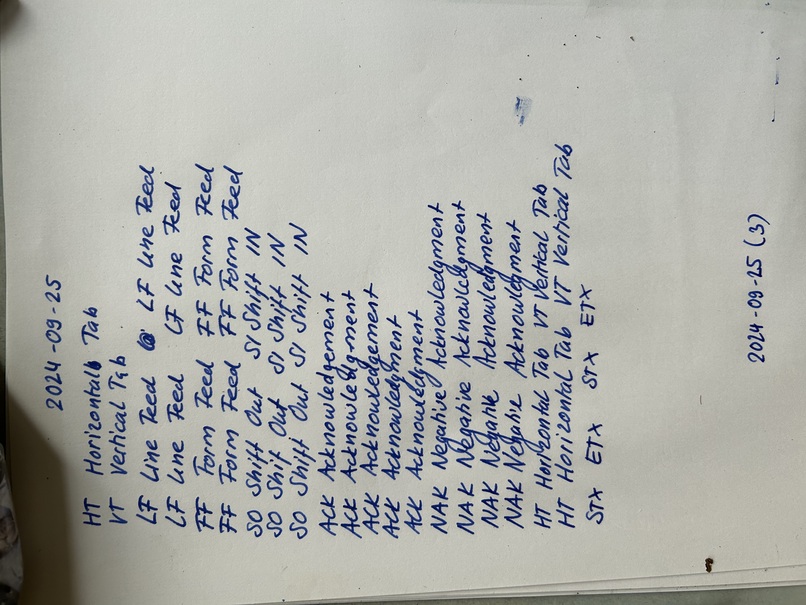 2024-09-25
HT Horizontal Tab
VT Vertical Tab
LF Line Feed LF Line Feed
LF Line Feed LF Line Feed
FF Form Feed FF Form Feed
FF Form Feed FF Form Feed
SO Shift Out SI Shift IN
SO Shif Out SI Shift IN
SO Shift Out SI Shift IN
ACK Acknowledgement
ACK Acknowledgment
ACK Acknowledgement
ACK Acknowledgment
ACK Acknowledgment
NAK Negative Acknowledgment
NAK Negative Acknowledgment
NAK Negative Acknowledgment
NAK Negative Acknowledgment
HT Horizontal Tab VT Vertical Tab
HT Horizontal Tab VT Vertical Tab
STX ETX STX ETX
2024-09-25 (3)